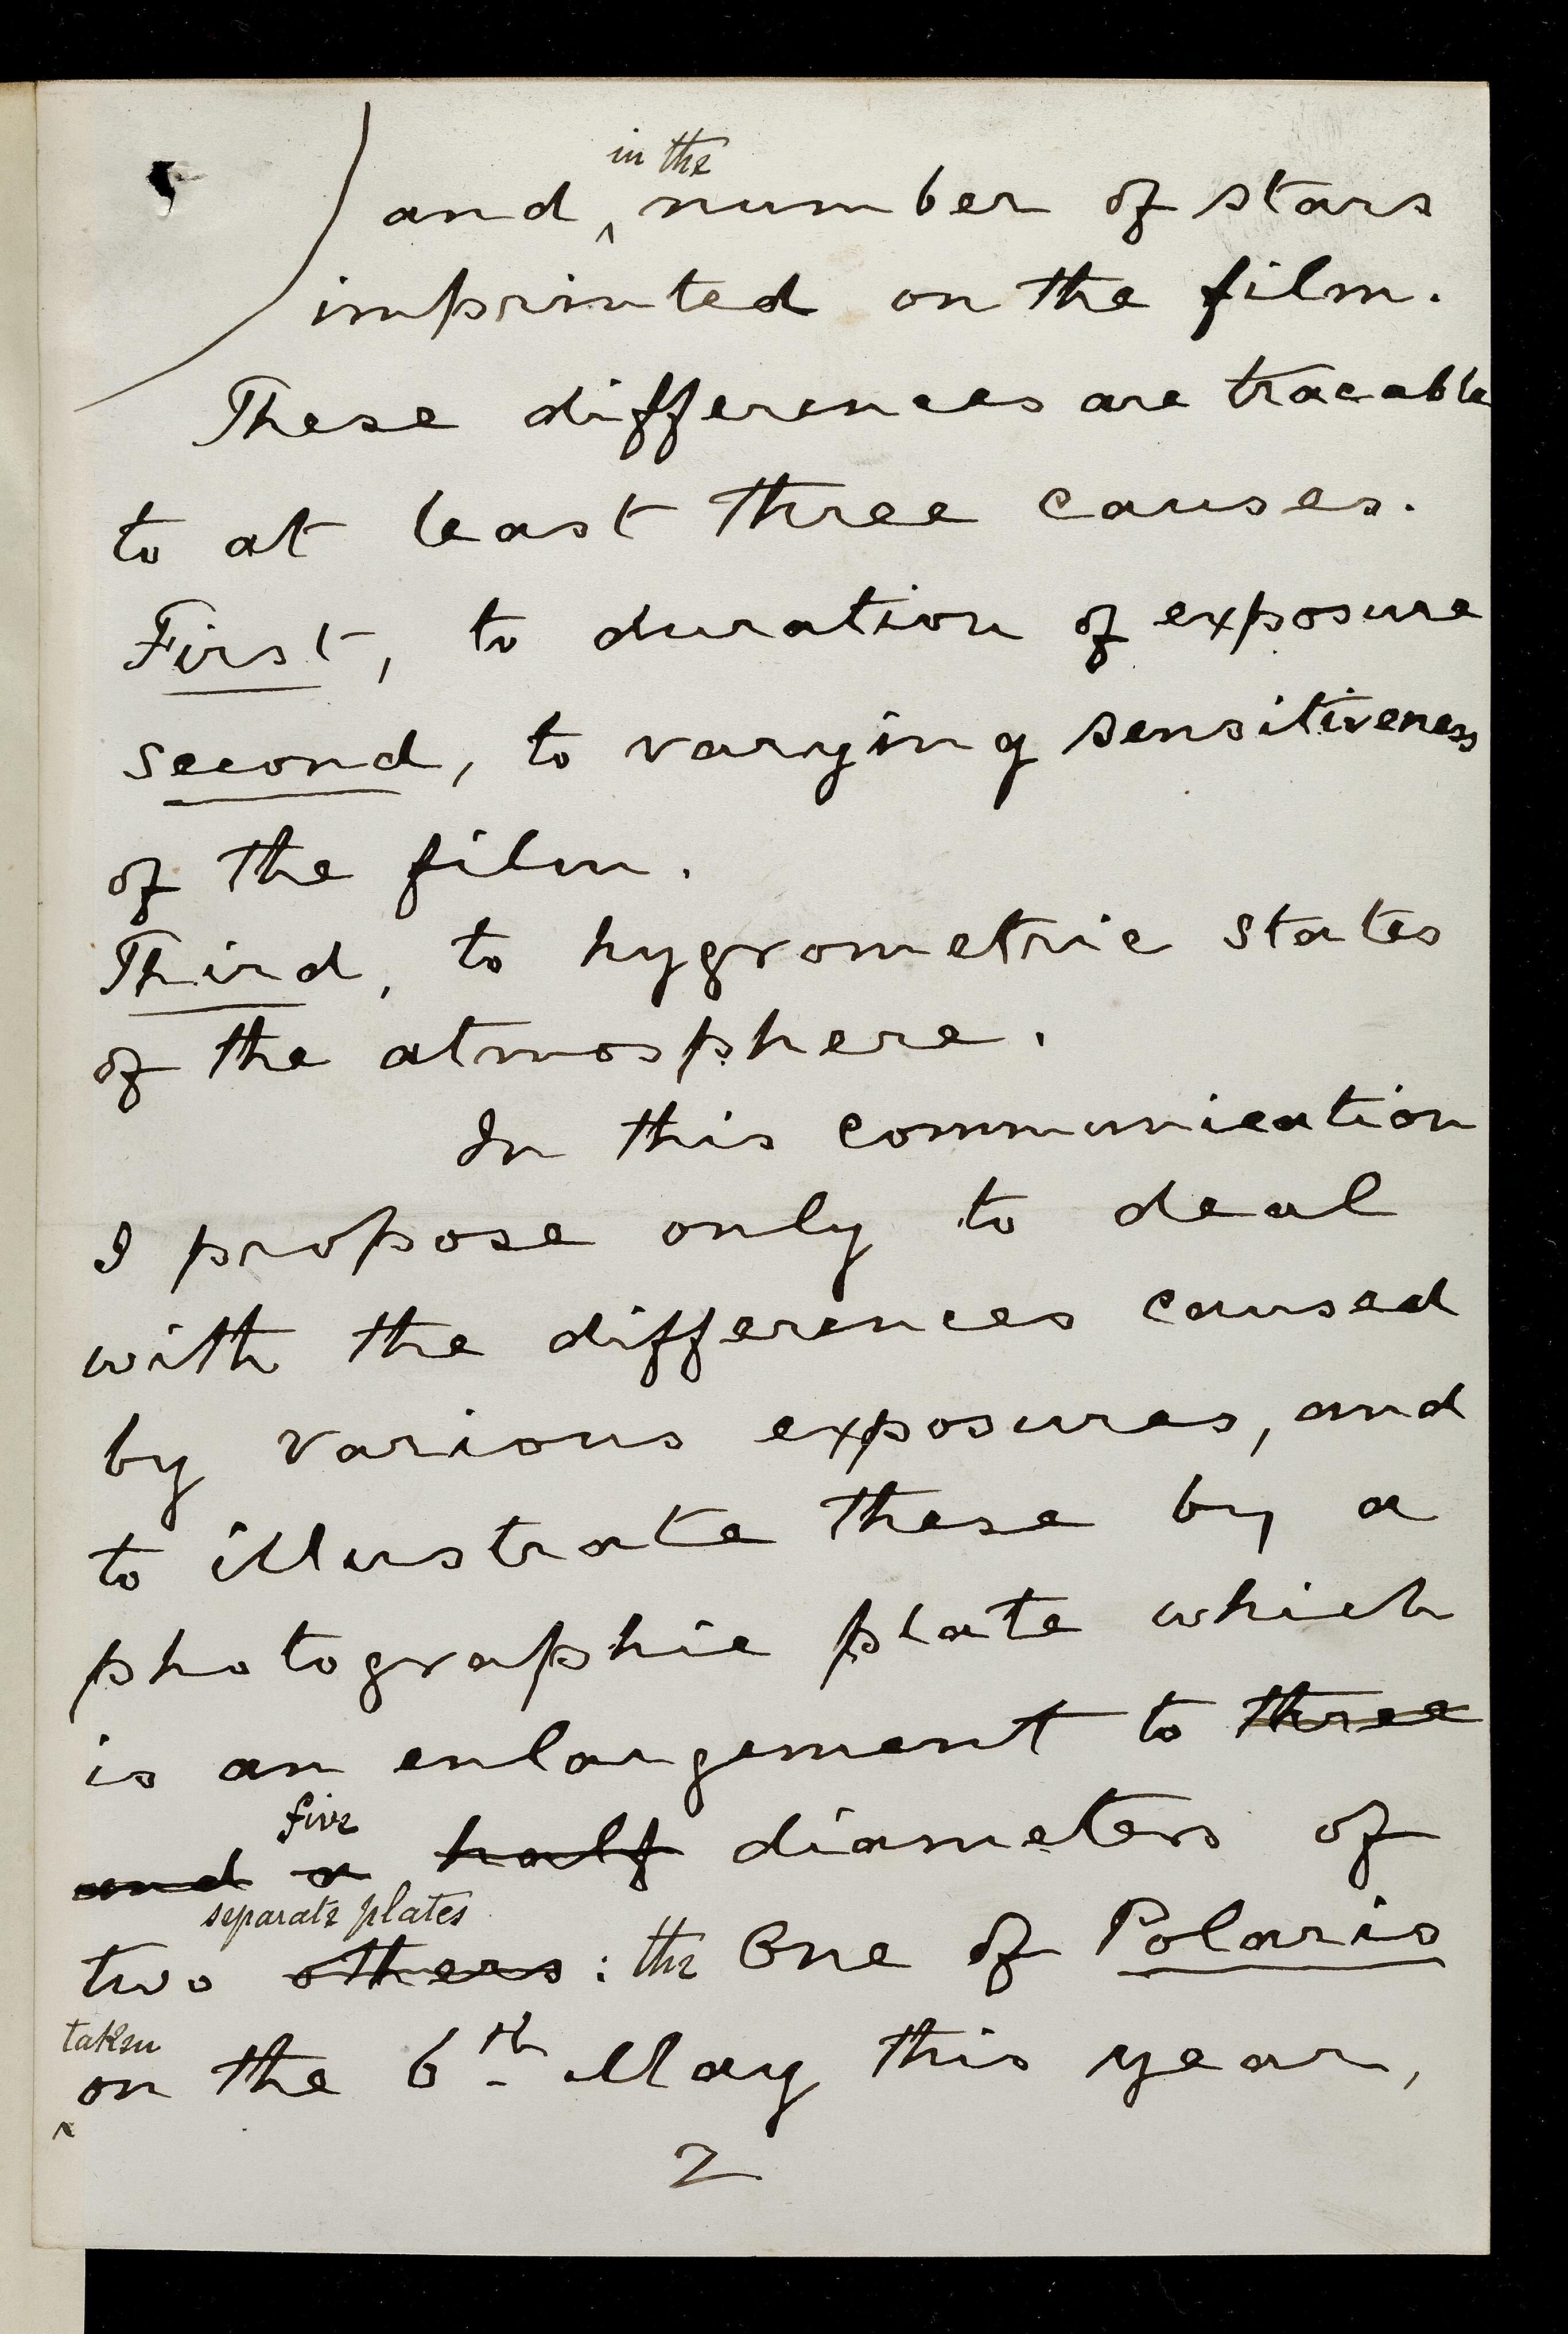 in the
and ‸ number of stars
imprinted on the film.
These differences are traceable
to at least three causes.
First, to duration of exposure
second, to varying sensitiveness
of the film.
Third, to hygrometric states
of the atmosphere.
In this communication
I propose only to deal
with the differences caused
by various exposures, and
to illustrate these by a
photographic plate which
is an enlargement to three
five
and a half diameters of
separate plates
two others : the One of Polaris
taken
‸ on the 6th. May this year,
2